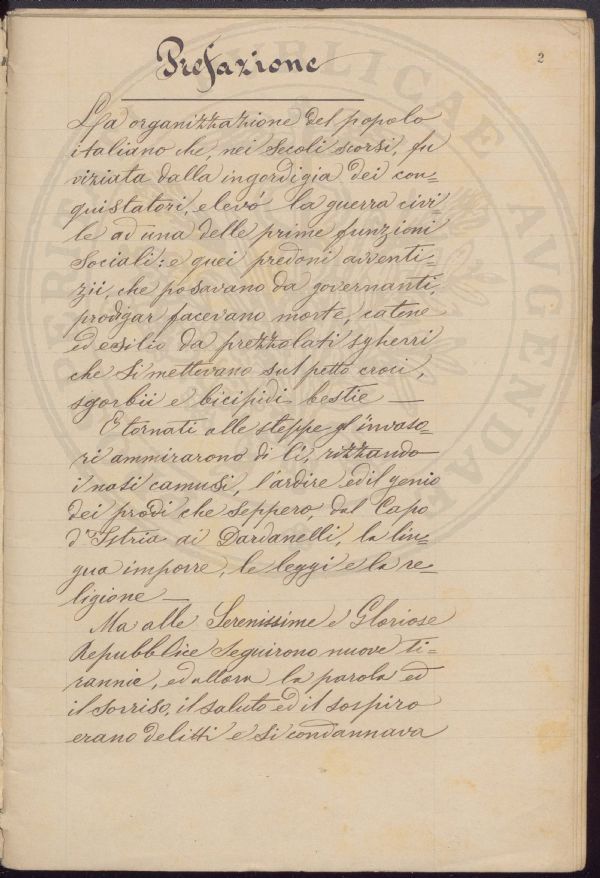 Prefazione
2
La organizzazione del popolo
italiano che, nei Secoli scorsi, fu
viziata dalla ingordigia dei con=
quistatori, elevó la guerra civi=
le ad una delle prime funzioni
Sociali: e quei predoni avventi=
zii, che posavano da governanti,
prodigar facevano morte, catene
ed esilio da prezzolati sgherri
che Si mettevano sul petto croci,
sgorbii e bicipidi bestie —
E tornati alle steppe gl'invaso=
ri ammirarono di lì, rizzando
i nasi camusi, l'ardire ed il genio
dei prodi che seppero, dal Capo
d'Istria ai Dardanelli, la lin=
gua imporre, le leggi e la re=
ligione —
Ma alle Serenissime e Gloriose
Repubbliche Seguirono nuove ti=
rannie, ed allora la parola ed
il Sorriso, il saluto ed il sospiro
erano delitti e Si condannava
PUBLICAE
AVGENDAE